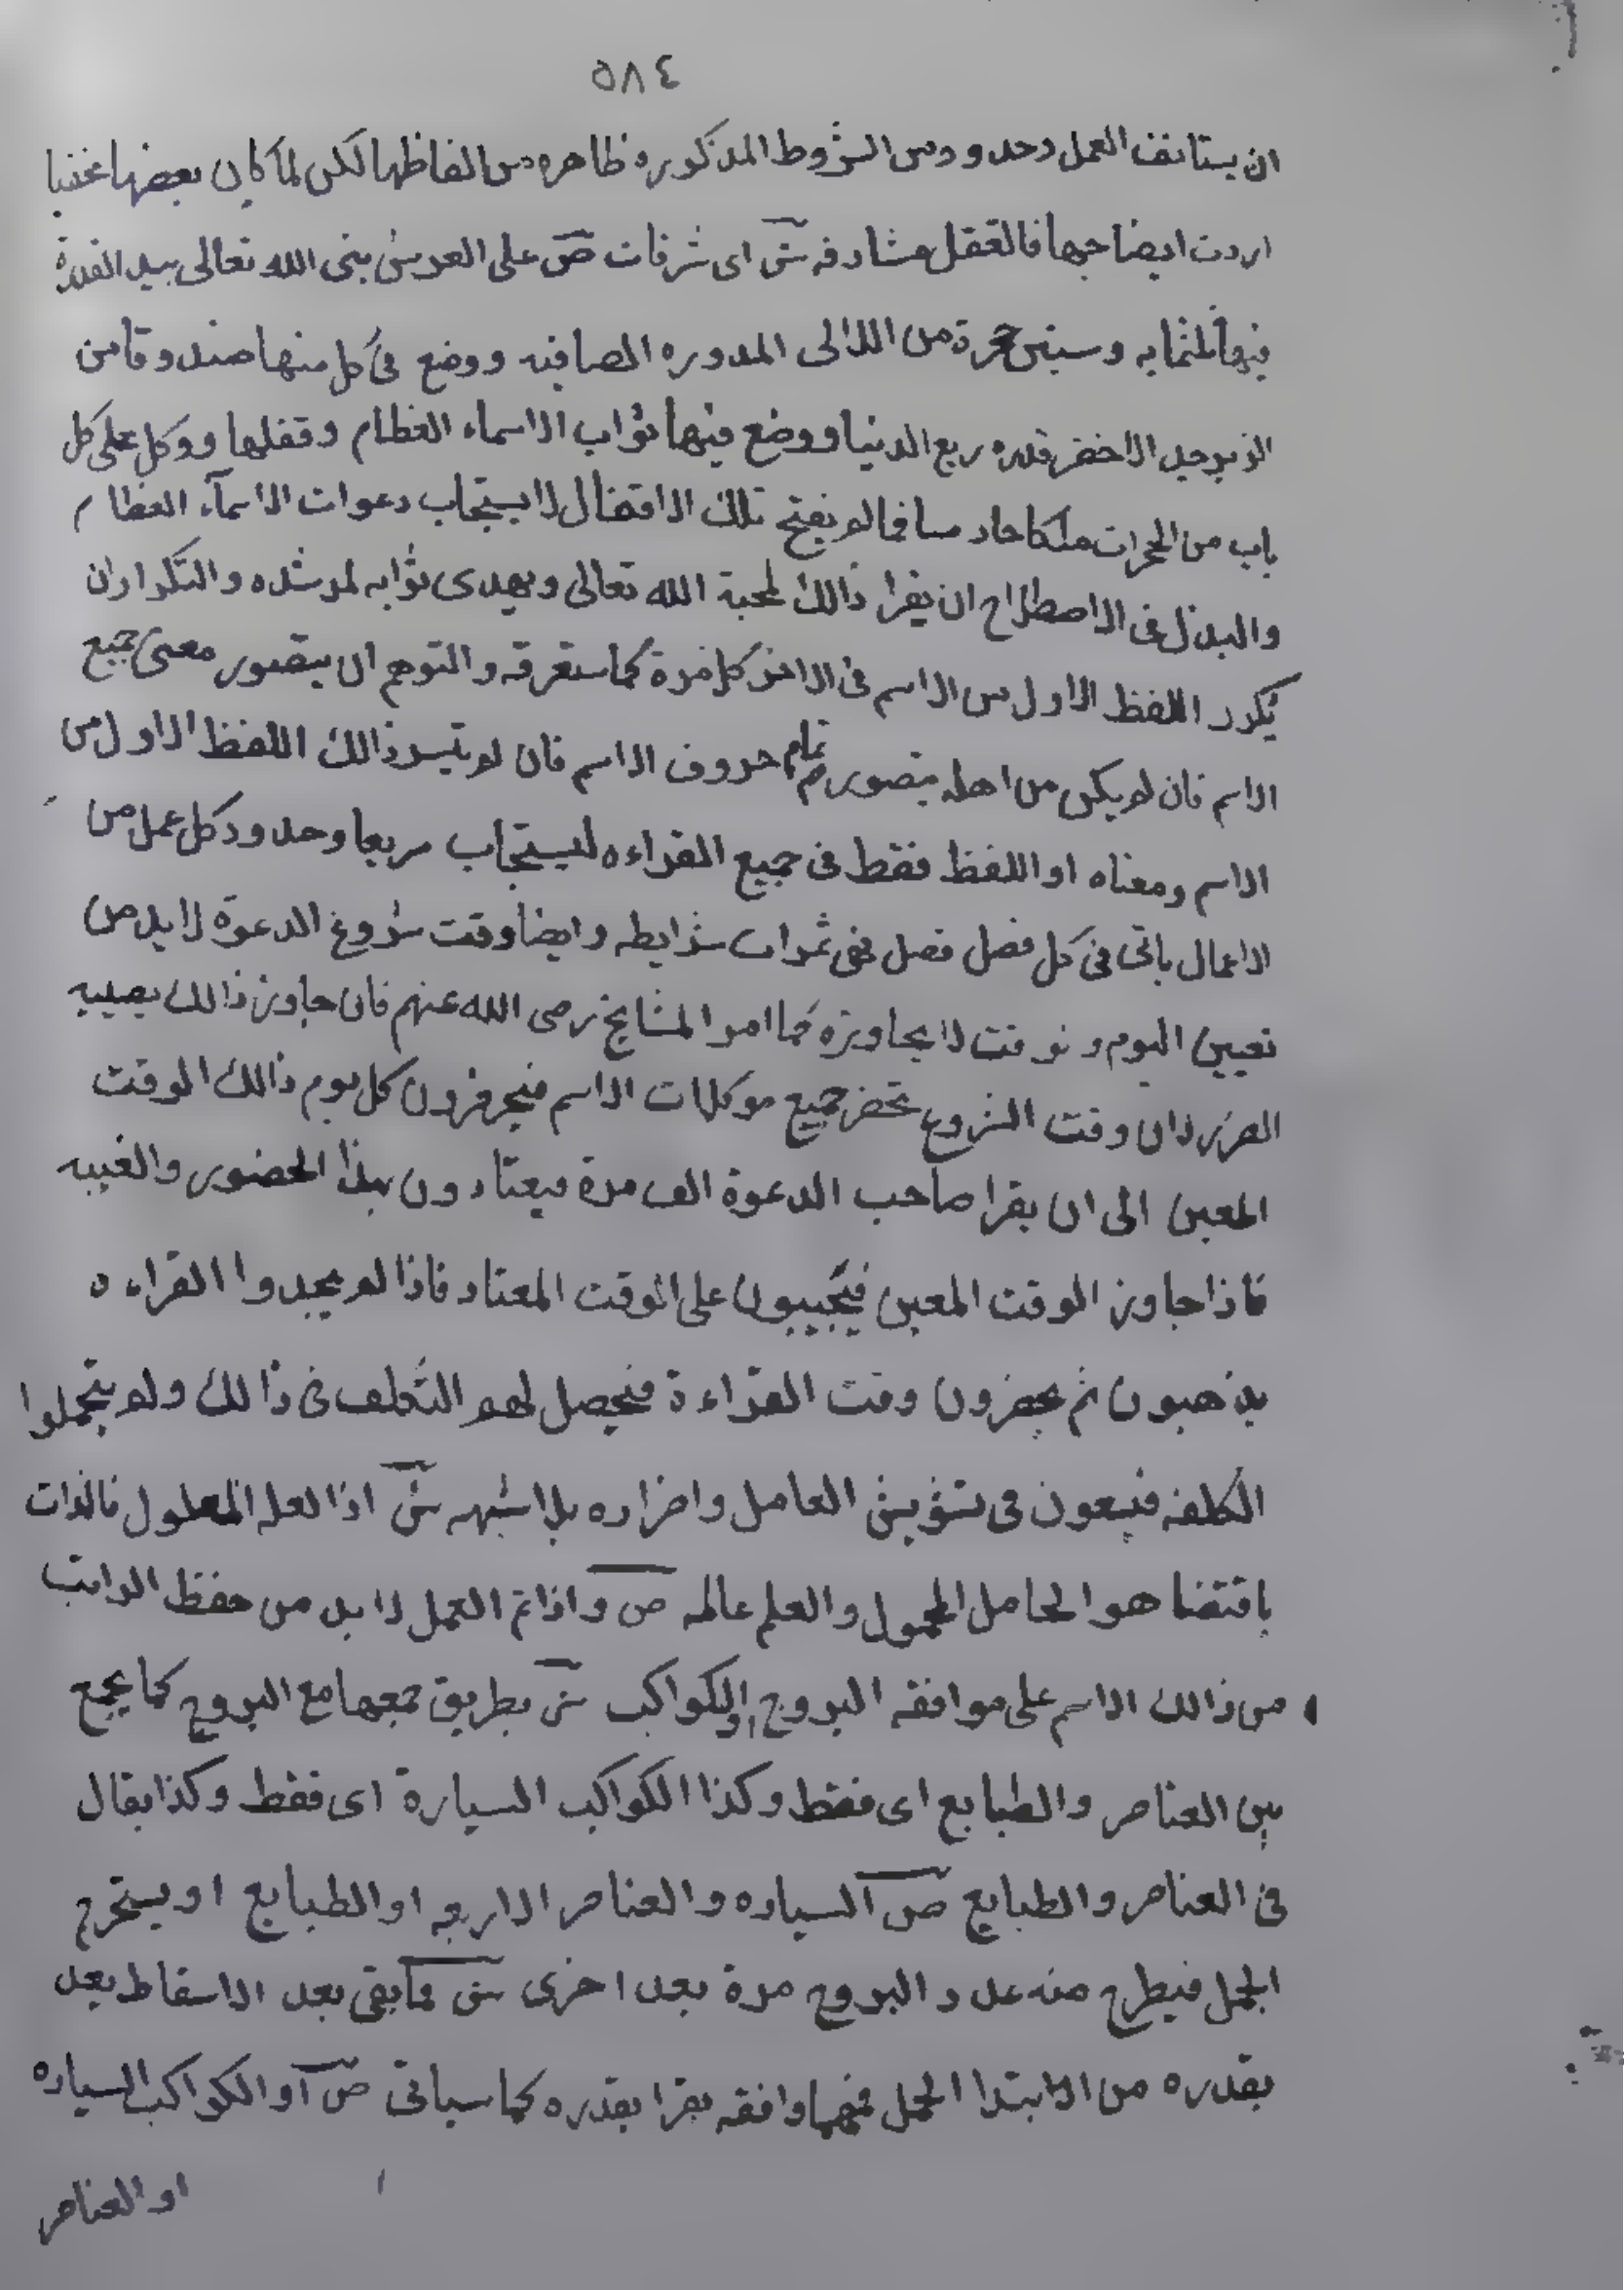 ٥٨٤
ان يستانف العمل وحدود ومن الشروط المذكوره ظاهره من الفاظها لكن لما كان بعضها مخفيا
اردت ايضاحها فالقفل مشارفه ش اى شرفات ص على العرش بنى الله تعالى بيد القدرة
فيها ثلثمايه وستين حجرة من اللالى المدوره الصافيه ووضع فى كل منها صندوقا من
الزبرجد الاخضر قدره ربع الدنيا ووضع فيها ثواب الاسماء العظام وقفلها ووكل على كل
باب من الحجرات ملكا حاد سا فما لم يفتح تلك الاقفال لا يستجاب دعوات الاسمآء العظام
والبذل فى الاصطلاح ان يقرا ذالك لمحبة الله تعالى ويهدى ثوابه لمرشده والتكرار ان
يكرر اللفظ الاول من الاسم فى الاخر كل مرة كما ستعرفه والتوهم ان يتصور معنى جميع
الاسم فان لم يكن من اهله يتصور تمام حروف الاسم فان لم تيسر ذالك اللفظ الاول من
الاسم ومعناه او اللفظ فقط فى جميع القراءه ليستجاب سريعا وحدود كل عمل من
الاعمال ياتى فى كل فصل فصل فى ثمرات شرايطه وايضا وقت شروع الدعوة لا بد من
تعيين اليوم و وقت لا يجاوزه كما امر المشايخ رضى الله عنهم فان جاوز ذالك يصيبه
الضرر لان وقت الشروع تحضر جميع موكلات الاسم فيحرفزون كل يوم ذالك الوقت
المعين الى ان يقرا صاحب الدعوة الف مرة فيعتادون بهذا الحضور والغيبه
فاذا جاوز الوقت المعين فيجيبون على الوقت المعتاد فاذا لم يجدوا القراءه
يذهبون ثم يحضرون وقت القراءة فيحصل لهم التكلف فى ذالك ولم يتحملوا
الكلفه فيسعون فى تشويش العامل واضراره بلا شبهه ش اذا لعله المعلول فالذات
باقتضا هو الحامل المحمول والعلم عالمه ص واذا تم العمل لا بد من حفظ الراتب
من ذالك الاسم على موافقه البروج او الكواكب ش بطريق جمعها مع البروج كما يجمع
بين العناصر والطبايع اى فقط وكذا الكواكب السيارة اى فقط وكذا يقال
فى العناصر والطبايع ص السياره والعناصر الاربعه او الطبايع او يستخرج
الجمل فيطرح منه عدد البروج مرة بعد اخرى ش فما بقى بعد الاسقاط يعد
بقدره من الابتدا الحمل فيهما وافقه يقرا بقدره كما سياتى ص او الكواكب السياره
او العناصر